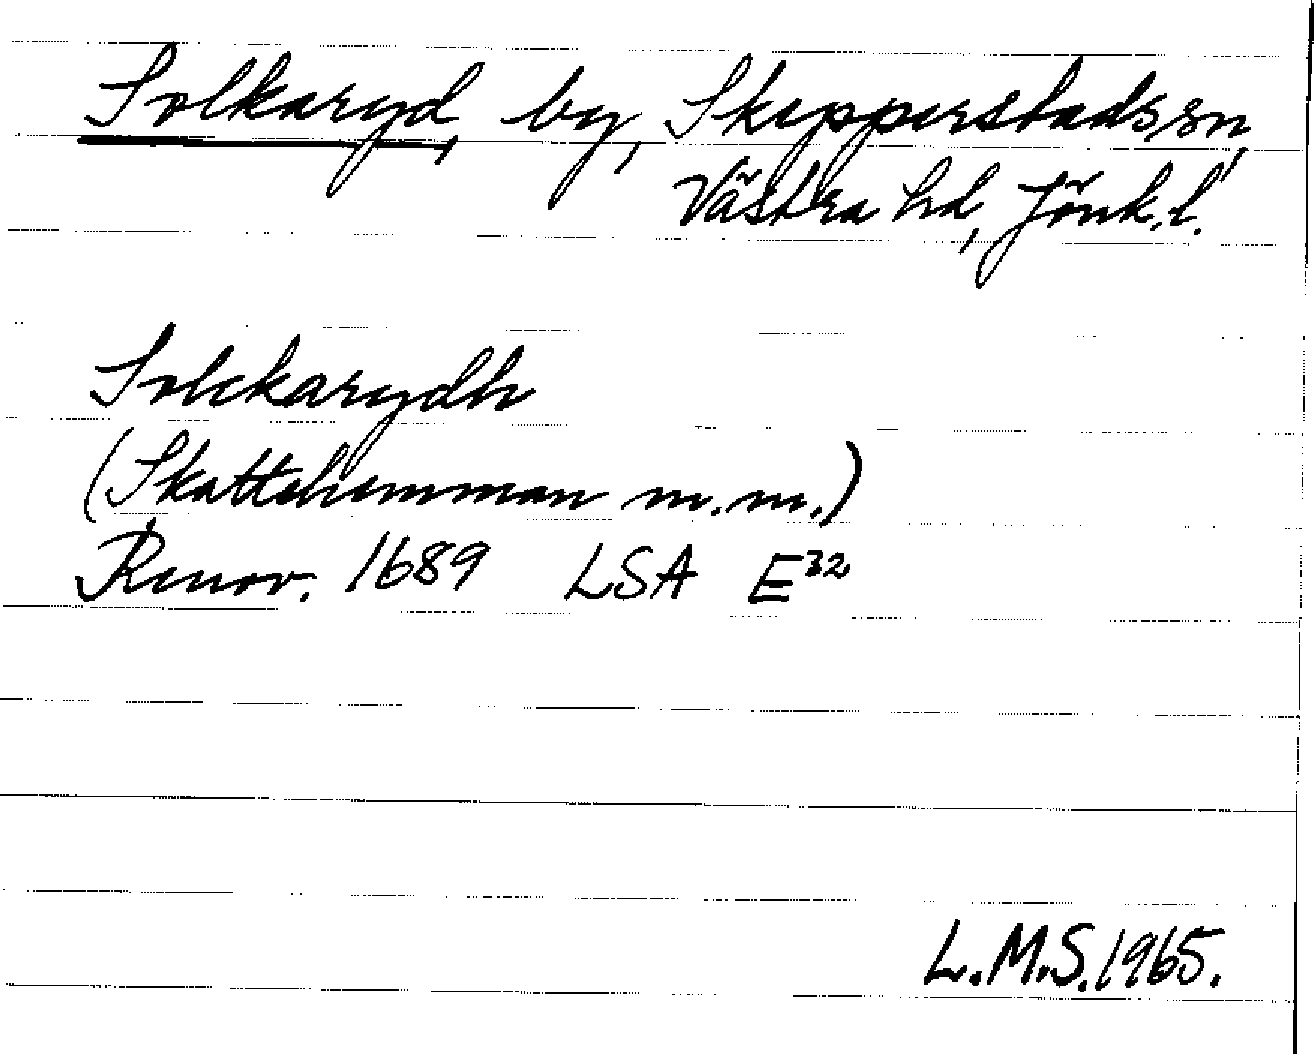 Solkaryd, by, Skepperstads sn,
Västra hd, Jönk.l.
Solckarydh
(Skattehemman m.m.)
Renov. 1689 LSA E³²
L.M.S. 1965.